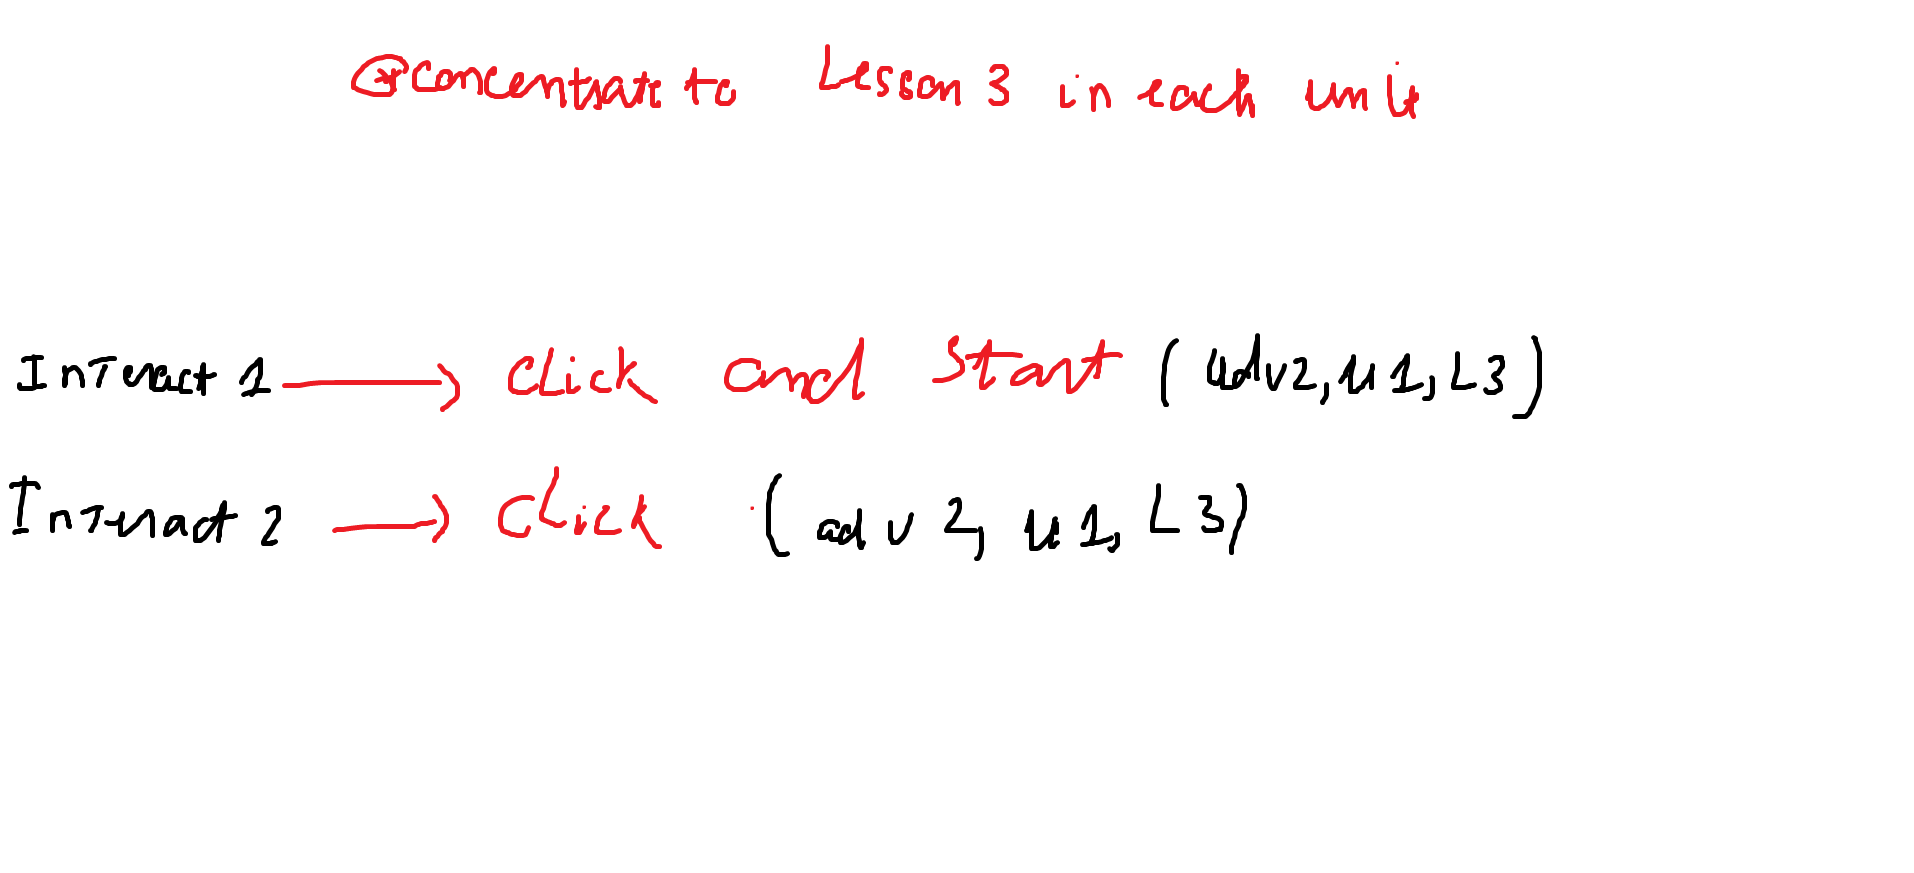 * concentrate to Lesson 3 in each unit
Interact 1 → Click and Start (adv2, u1, L3)
Interact 2 → Click (adv 2, u1, L3)